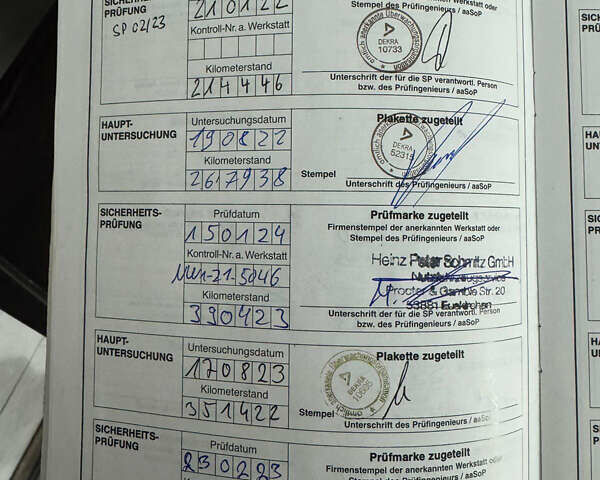 SICHERHEITS-
PRÜFUNG
SP 02/23
210122
Kontroll-Nr. a. Werkstatt
Kilometerstand
214446
Stempel des Prüfingenieurs / aaSoP
DEKRA
10733
Unterschrift der für die SP verantwortl. Person
bzw. des Prüfingenieurs / aaSoP
HAUPT-
UNTERSUCHUNG
Untersuchungsdatum
190822
Kilometerstand
267938
Plakette zugeteilt
DEKRA
Stempel
Unterschrift des Prüfingenieurs / aaSoP
SICHERHEITS-
PRÜFUNG
Prüfdatum
150124
Kontroll-Nr. a. Werkstatt
Kilometerstand
390423
Prüfmarke zugeteilt
Firmenstempel der anerkannten Werkstatt oder
Stempel des Prüfingenieurs / aaSoP
Heinz Peter Schmitz GmbH
Procter & Gamble Str. 20
53881 Euskirchen
Unterschrift der für die SP verantwortl. Person
bzw. des Prüfingenieurs / aaSoP
HAUPT-
UNTERSUCHUNG
Untersuchungsdatum
170823
Kilometerstand
351422
Plakette zugeteilt
DEKRA
Stempel
Unterschrift des Prüfingenieurs / aaSoP
SICHERHEITS-
PRÜFUNG
Prüfdatum
230223
Prüfmarke zugeteilt
Firmenstempel der anerkannten Werkstatt oder
Stempel des Prüfingenieurs / aaSoP